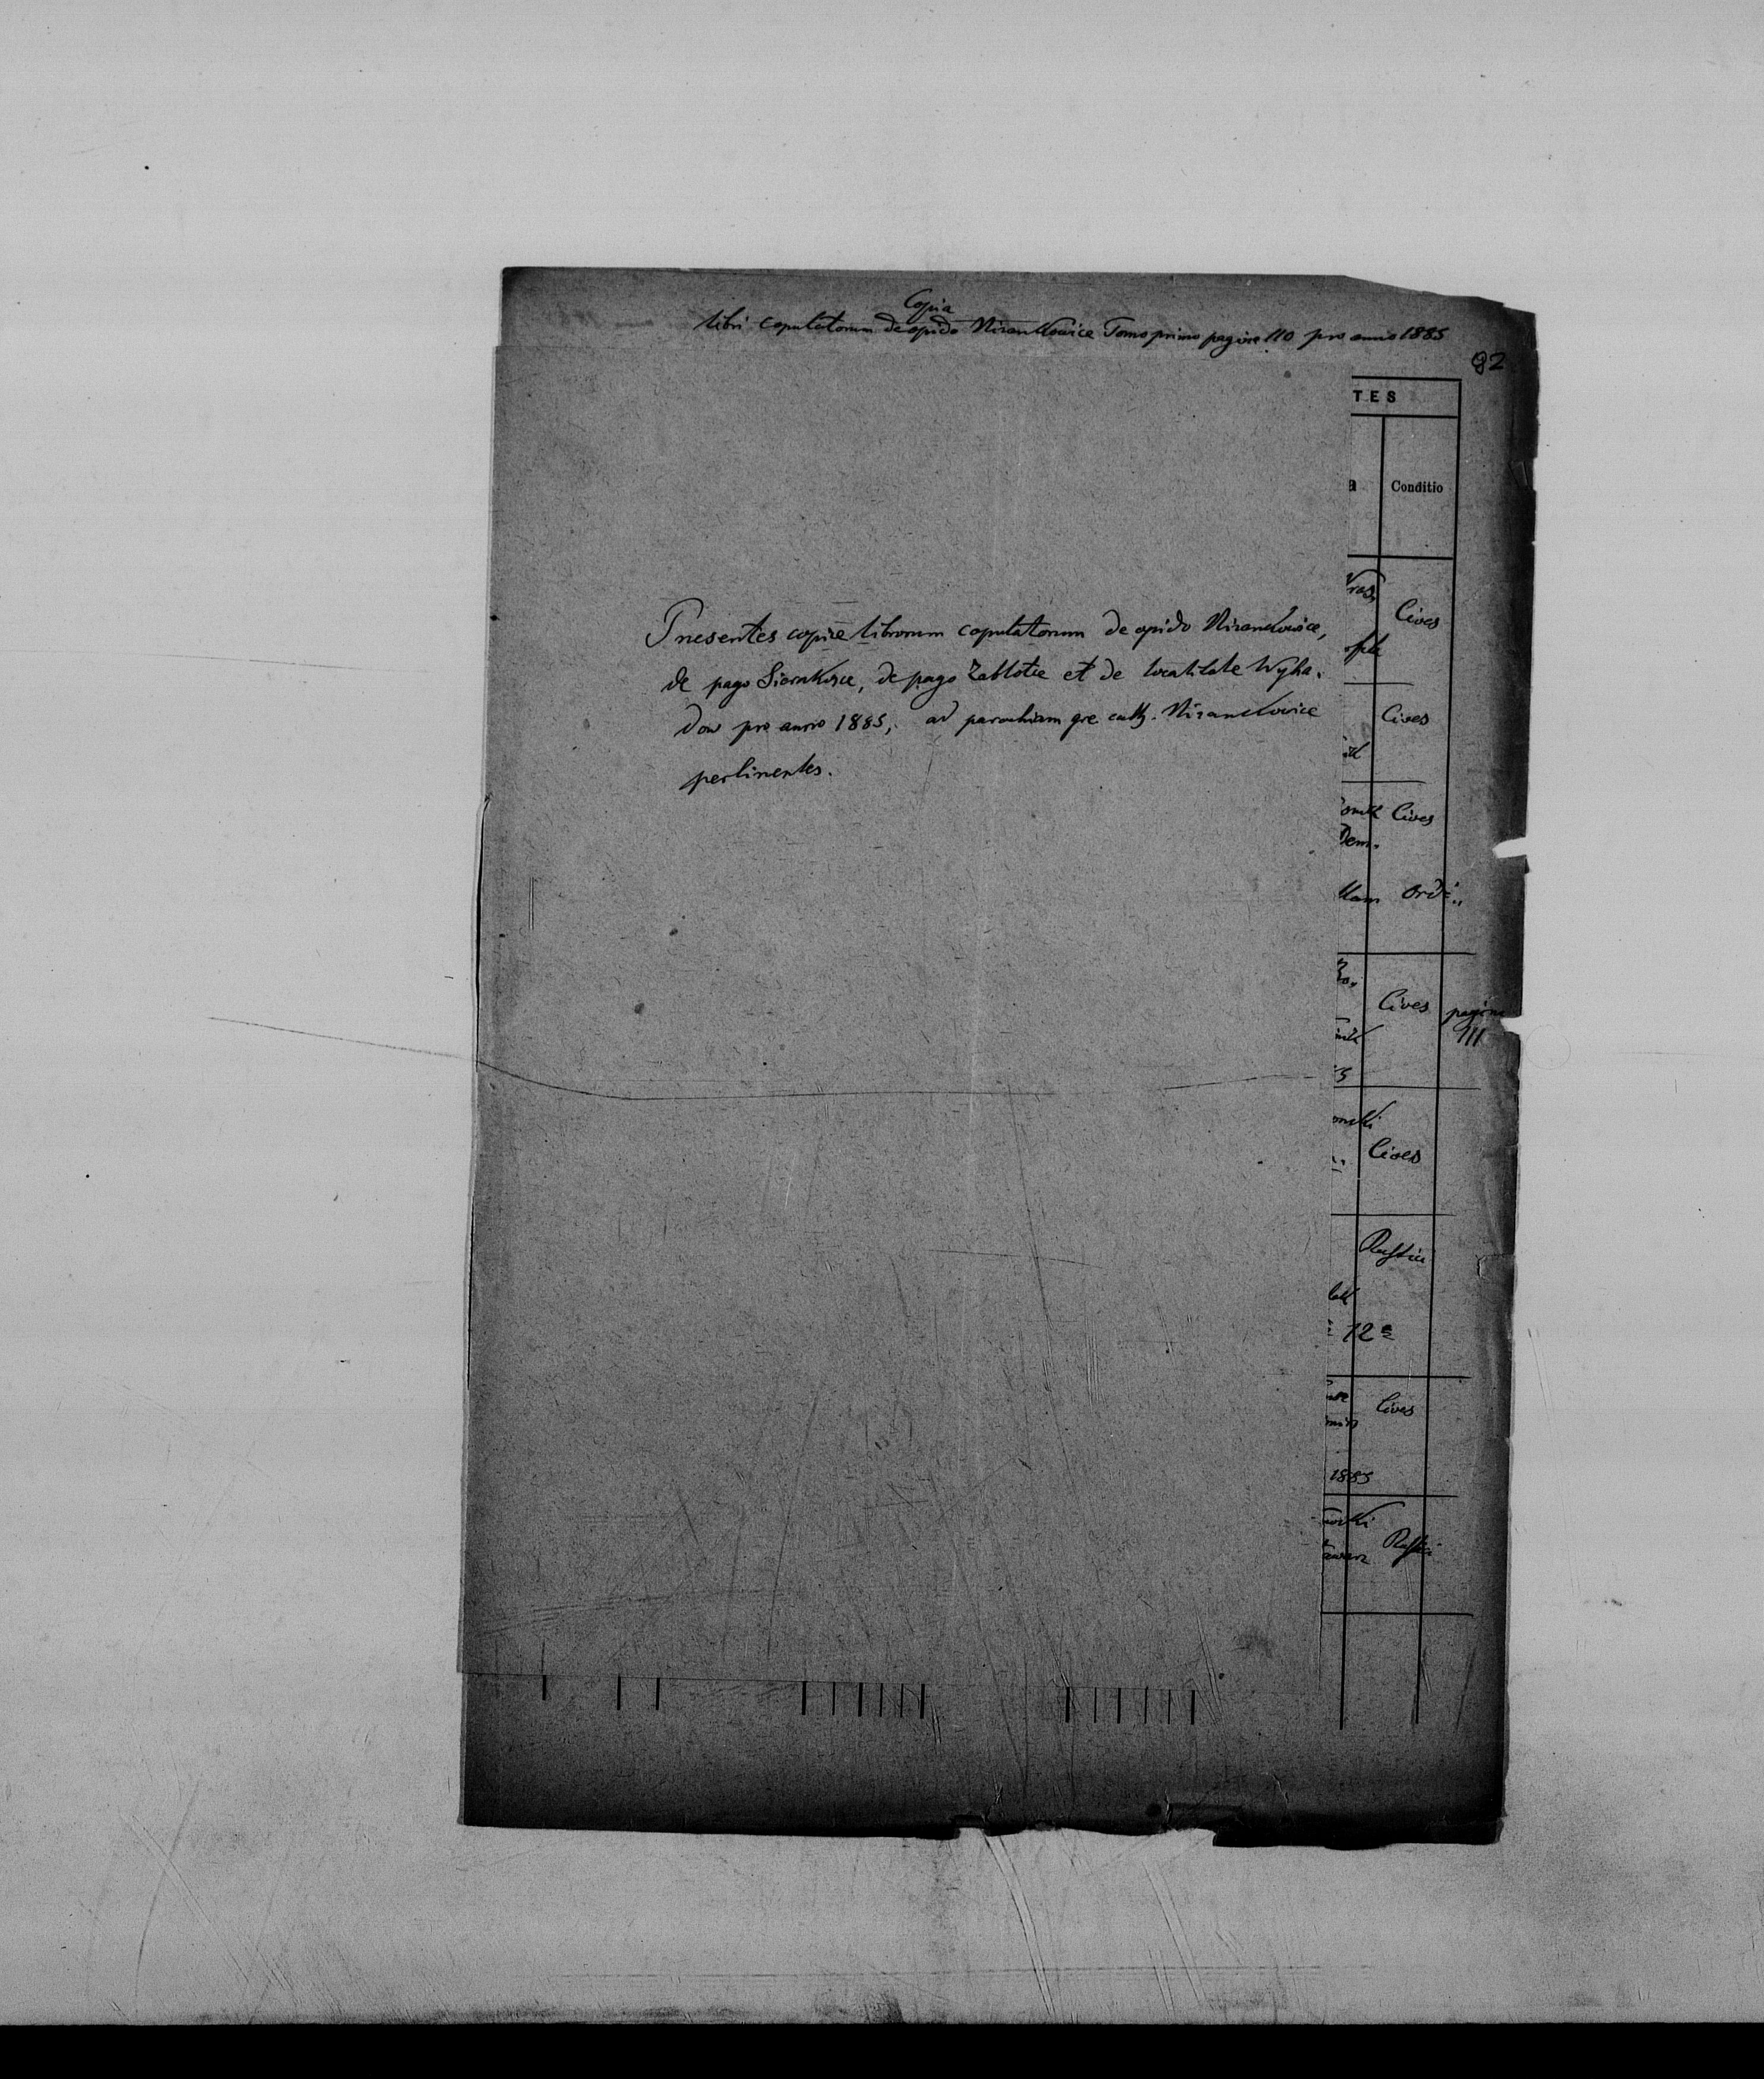 Copia
libri copulatorum de opido Nizankowice Tomo primo pagine 110 pro anno 1885
92
TES
a Conditio
Presentes copiæ librorum copulatorum de opido Nizankowice,
de pago Sierakosce, de pago Zablotie et de localitate Wyha-
dow pro anno 1885, ad parochiam gre cath. Nizankowice
pertinentes.
Cives
Cives
Cives
Dem.
Ordi„
Cives pagina
111
Cives
Rustici
12
Cives
1885
Rustici